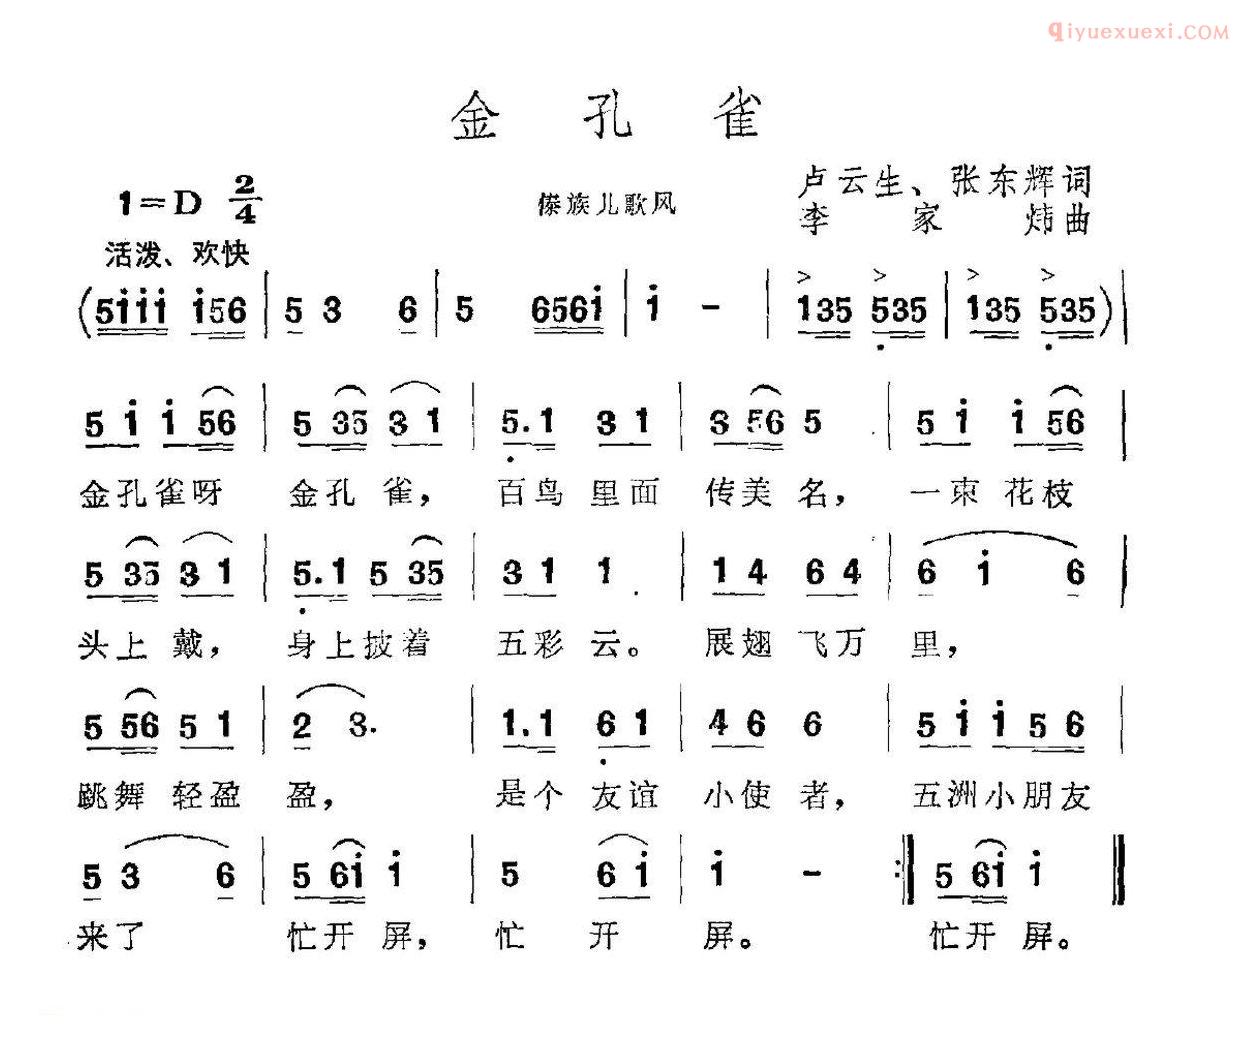 qiyuexuexi.COM
金孔雀
1=D 2/4
傣族儿歌风
卢云生、张东辉词
李家炜曲
活泼、欢快
(5iii i56 | 5 3 6 | 5 6561 | i - | 135 535 | 135 535) |
5 i i 56 | 5 35 3 1 | 5.1 3 1 | 3 56 5 | 5 i i 56 |
金孔雀呀 金孔 雀, 百鸟 里面 传美 名, 一束 花枝
5 35 3 1 | 5.1 5 35 | 3 1 1 | 1 4 6 4 | 6 i 6 |
头上 戴, 身上披着 五彩 云。 展翅 飞万 里,
5 56 5 1 | 2 3. | 1.1 6 1 | 4 6 6 | 5 i i 5 6 |
跳舞 轻盈 盈, 是个 友谊 小使 者, 五洲小朋友
5 3 6 | 5 6i i | 5 6 i | i - :‖ 5 6i i ‖
来了 忙开 屏, 忙 开 屏。 忙开 屏。